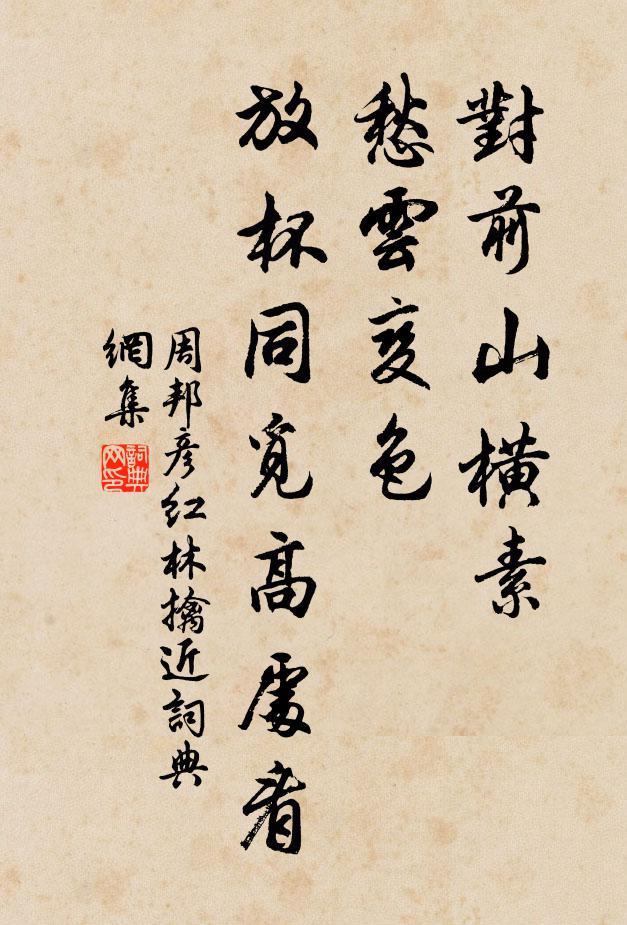 對前山橫素
愁雲变色
放杯同覓高處看
周邦彥红林擒近詞典
網集
詞典
网印